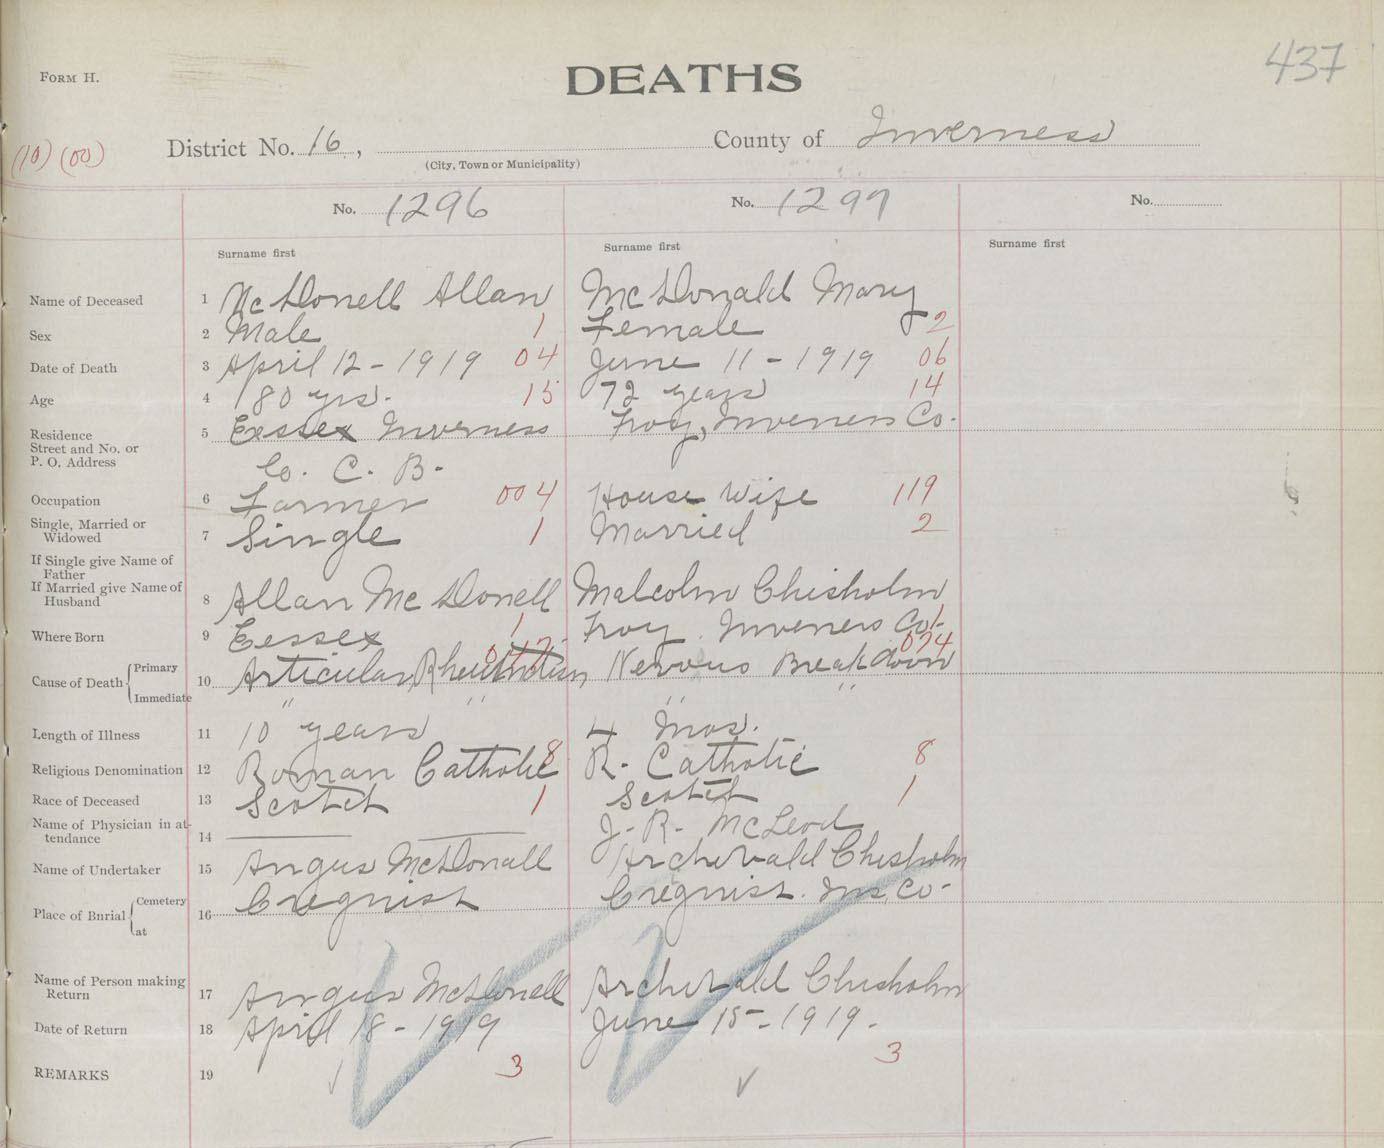 437
FORM H.
DEATHS
(10) (00)
District No. 16, County of Inverness
(City, Town or Municipality)
No. 1296 No. 1297 No.
Surname first Surname first Surname first
Name of Deceased 1 McDonell Allan McDonald Mary
Sex 2 Male 1 Female 2
Date of Death 3 April 12 - 1919 04 June 11 - 1919 06
Age 4 80 yrs. 15 72 years 14
Residence Street and No. or P. O. Address 5 Essex Inverness Troy, Inverness Co.
Co. C. B.
Occupation 6 Farmer 004 House Wife 119
Single, Married or Widowed 7 Single 1 Married 2
If Single give Name of Father
If Married give Name of Husband 8 Allan McDonell Malcolm Chisholm
Where Born 9 Eessex 1 Troy. Inverness Co. 1
047 074
Cause of Death Primary 10 Articular Rheumatism Nervous Break down
Immediate " " " "
Length of Illness 11 10 years 4 Mos.
Religious Denomination 12 Roman Catholic 8 R. Catholic 8
Race of Deceased 13 Scotch 1 Scotch 1
Name of Physician in attendance 14 J. R. McLeod
Name of Undertaker 15 Angus McDonall Archibald Chisholm
Place of Burial Cemetery at 16 Cregnist Cregnist. Ins. Co-
Name of Person making Return 17 Angus McDonell Archibald Chisholm
Date of Return 18 April 18 - 1919 June 15 - 1919.
REMARKS 19 3 3